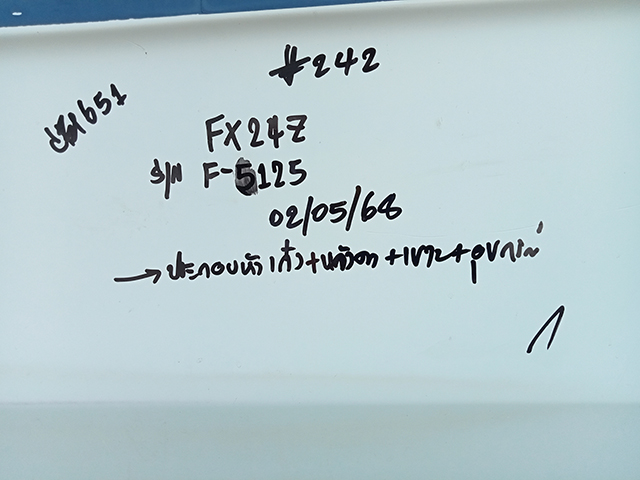 #242
651
FX24Z
S/N F-5125
02/05/68
→ ประกอบหัวเก๋ง+แก้วตา+เบาะ+อุปกรณ์